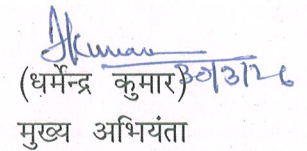 Dkumar
(धर्मेन्द्र कुमार) 30/3/26
मुख्य अभियंता